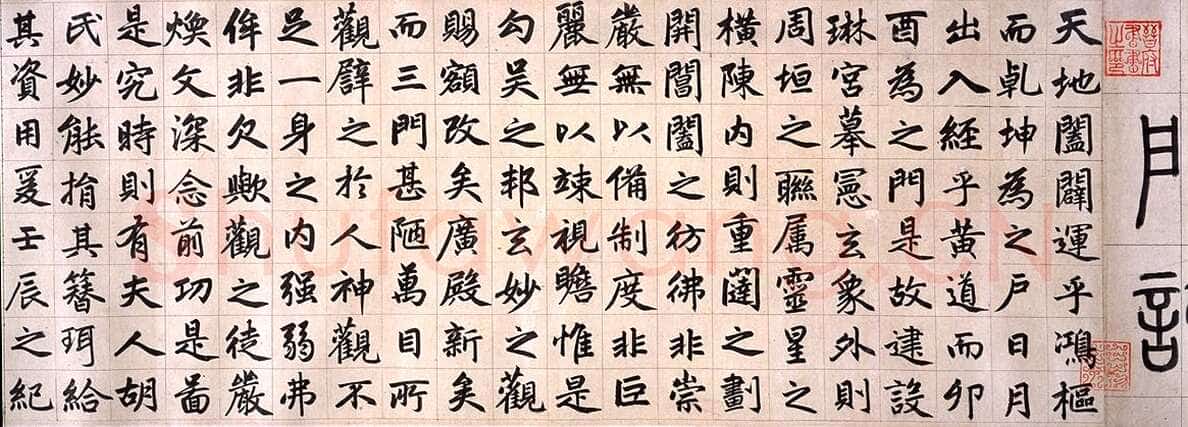 天地闔闢運乎鴻樞
而乹坤為之戸日月
出入經乎黄道而卯
酉為之門是故建設
琳宮摹憲玄象外則
周垣之聮属靈星之
横陳内則重闥之劃
開閶闔之彷彿非崇
嚴無以備制度非巨
麗無以竦視瞻惟是
勾吴之邦玄妙之觀
賜額改矣廣殿新矣
而三門甚陋萬目所
觀譬之於人神觀不
足一身之内强弱弗
侔非欠歟觀之徒嚴
煥文深念前功是啚
是究時則有夫人胡
氏妙能捐其簮珥給
其資用爰壬辰之紀